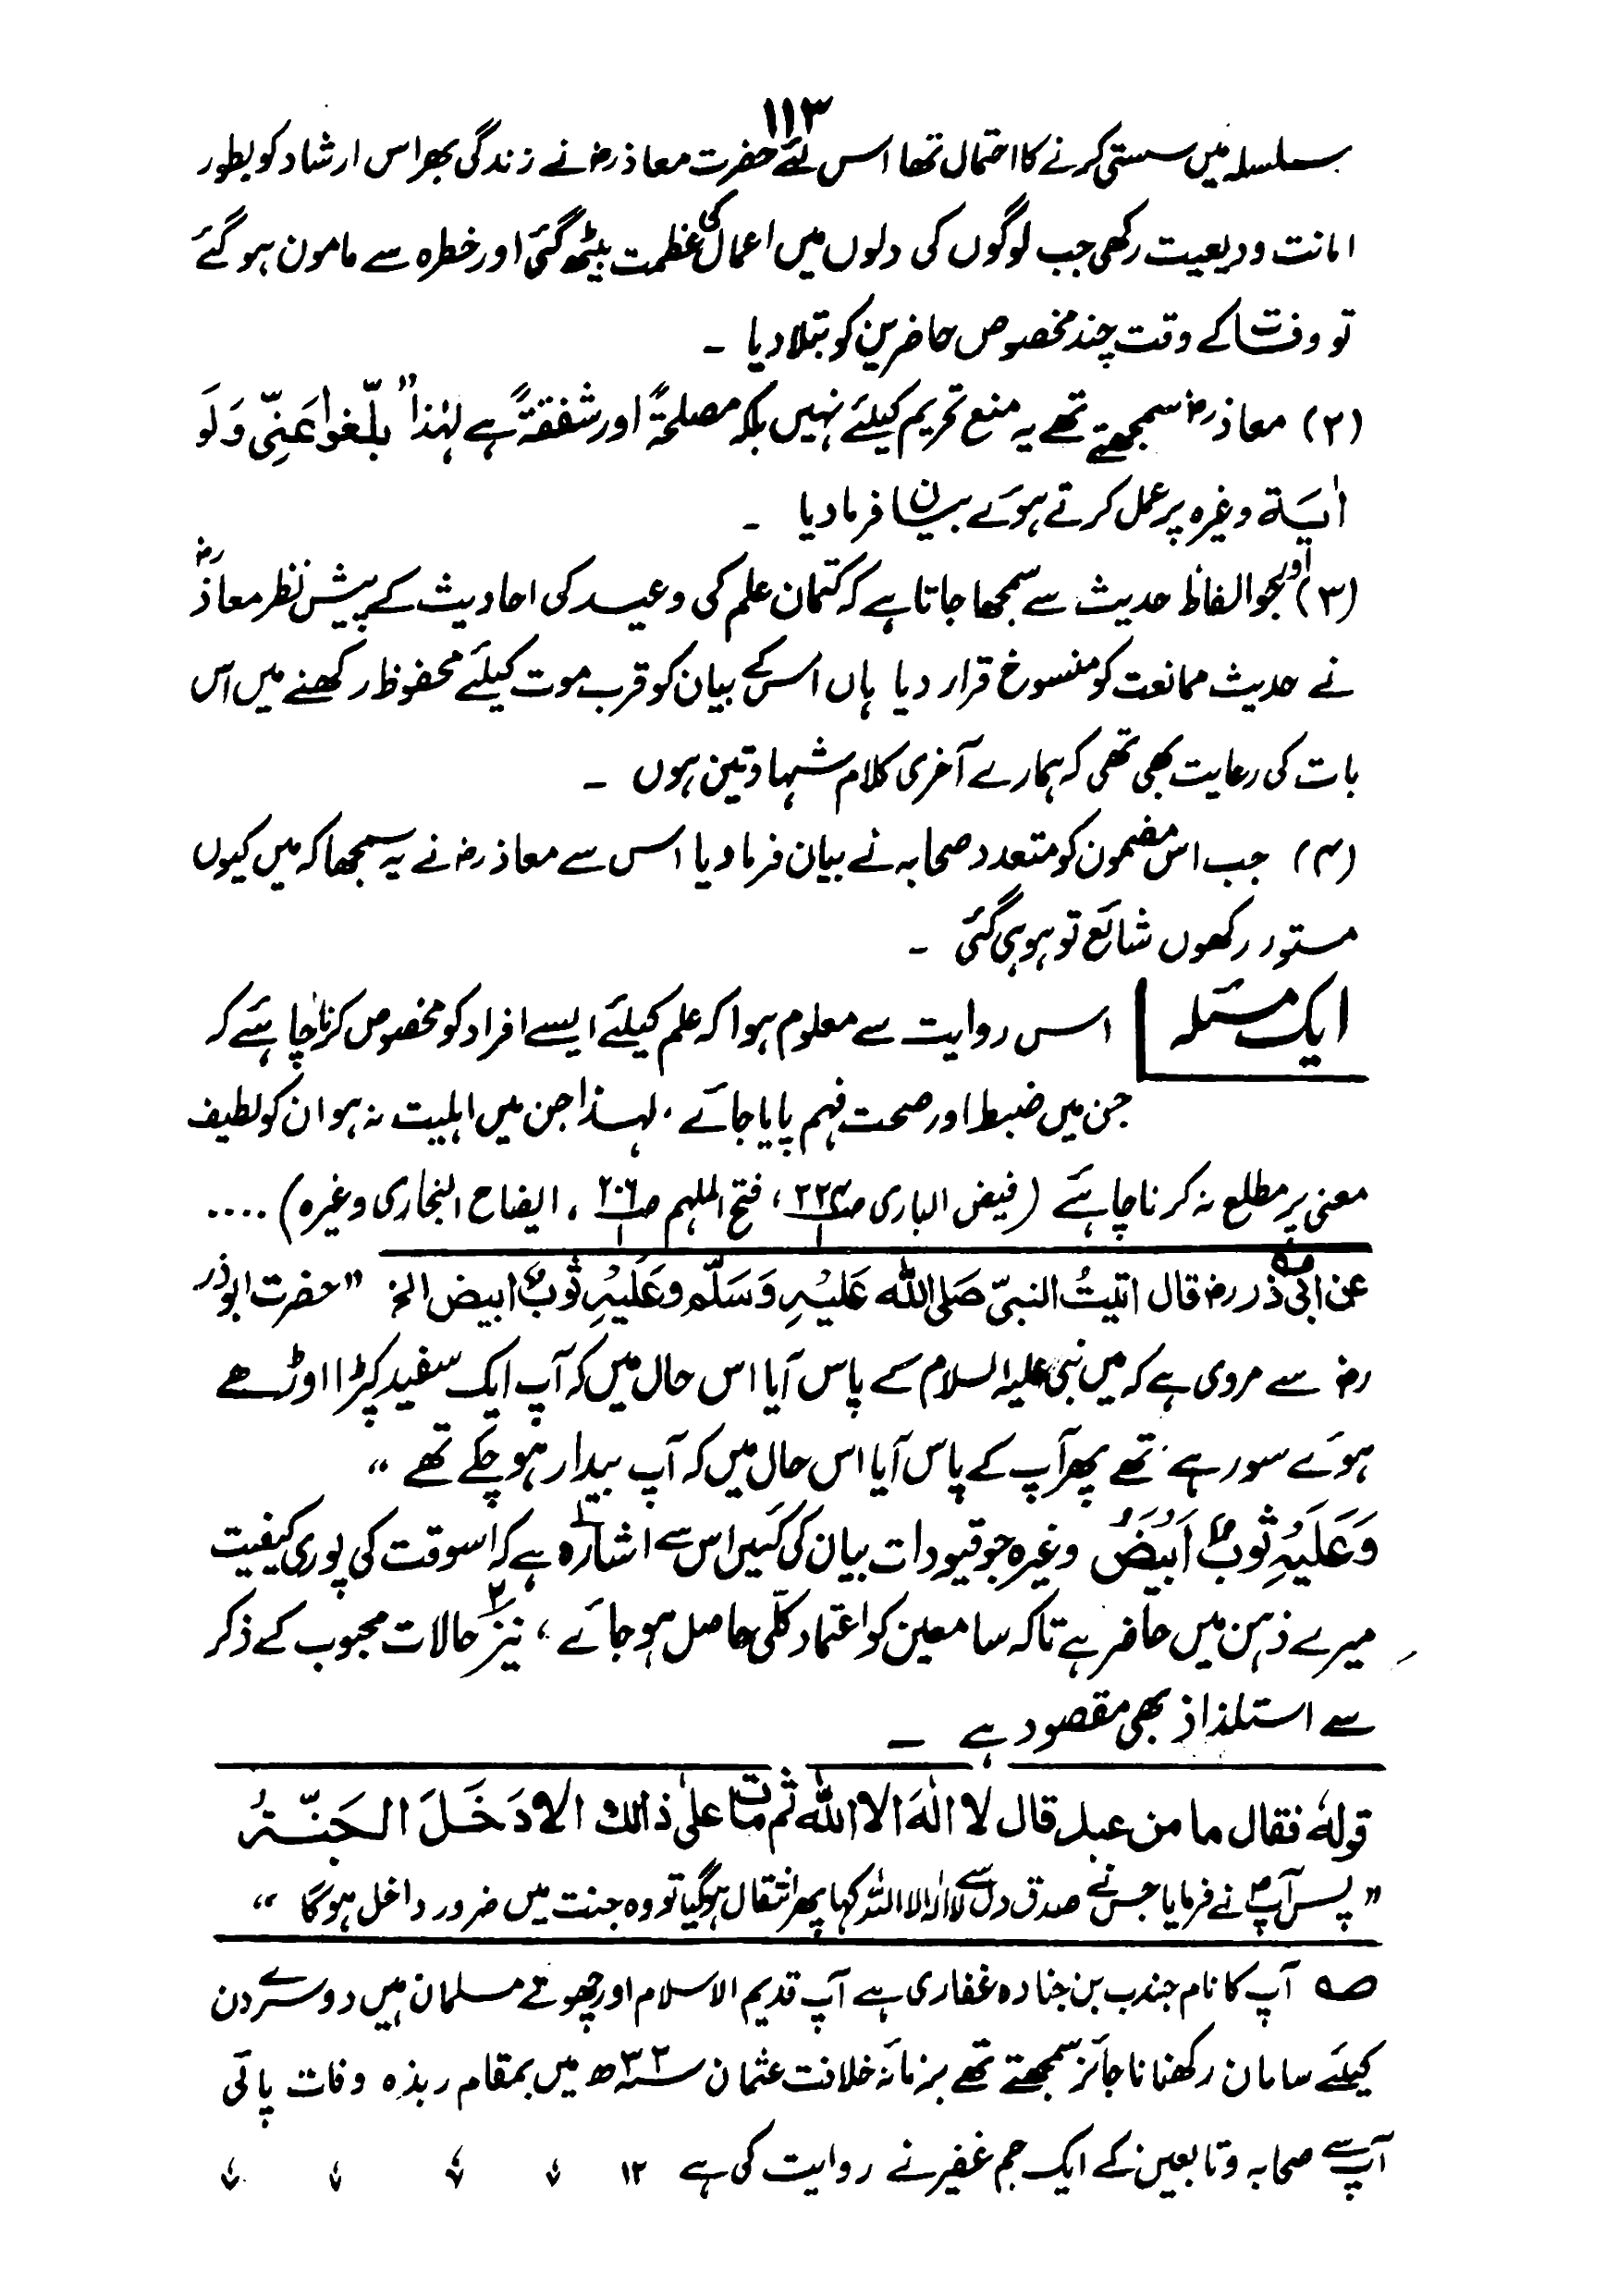 ۱۱۳
سلسلہ میں سستی کرنے کا احتمال تھا اس لئے حضرت معاذ رض نے زندگی بھر اس ارشاد کو بطور
امانت ودیعیت رکھی جب لوگوں کی دلوں میں اعمال کی عظمت بیٹھ گئی اور خطرہ سے مامون ہو گئے
تو وفات کے وقت چند مخصوص حاضرین کو بتلا دیا ۔
(۲) معاذ رض سمجھتے تھے یہ منع تحریم کیلئے نہیں بلکہ مصلحۃً اور شفقۃً ہے لہٰذا "بلّغوا عَنِّی وَلَو
اٰیَۃ وغیرہ پر عمل کرتے ہوئے بیان فرما دیا ۔
(۳) اور بجو الفاظ حدیث سے سمجھا جاتا ہے کہ کتمان علم کی وعید کی احادیث کے پیش نظر معاذ رض
نے حدیث ممانعت کو منسوخ قرار دیا ہاں اس کے بیان کو قرب موت کیلئے محفوظ رکھنے میں اس
بات کی رعایت بھی تھی کہ ہمارے آخری کلام شہادتین ہوں ۔
(۴) جب اس مضمون کو متعدد صحابہ نے بیان فرما دیا اس سے معاذ رض نے یہ سمجھا کہ میں کیوں
مستور رکھوں شائع تو ہو ہی گئی ۔
ایک مسئلہ اس روایت سے معلوم ہوا کہ علم کیلئے ایسے افراد کو مخصوص کرنا چاہئے کہ
جن میں ضبط اور صحت فہم پایا جائے ، لہذا جن میں اہلیت نہ ہو ان کو لطیف
معنی پر مطلع نہ کرنا چاہئے (فیض الباری ص۲۲۴/۱ ، فتح الملہم ص۲۰۶/۱ ، ایضاح البخاری وغیرہ) ....
عن ابی ذر رض قال اتیتُ النبیّ صَلی اللّٰہ عَلیْہِ وَسَلَّم وعَلَیْہِ ثوبٌ ابیض الخ " حضرت ابو ذر
رض سے مروی ہے کہ میں نبی علیہ السلام کے پاس آیا اس حال میں کہ آپ ایک سفید کپڑا اوڑھے
ہوئے سو رہے تھے پھر آپ کے پاس آیا اس حال میں کہ آپ بیدار ہو چکے تھے "
وَعَلَیْہِ ثوبٌ اَبْیَضُ وغیرہ جو قیودات بیان کی گئیں اس سے ۱ اشارہ ہے کہ اسوقت کی پوری کیفیت
میرے ذہن میں حاضر ہے تاکہ سامعین کو اعتماد کلّی حاصل ہو جائے ، ۲ نیز حالات محبوب کے ذکر
سے استلذاذ بھی مقصود ہے ۔
قولہٗ فقال ما من عبد قال لا الٰہَ الا اللّٰہ ثم مات علیٰ ذالك الا دَخَلَ الجَنّۃُ
" پس آپؐ نے فرمایا جس نے صدق دل سے لا الٰہ الا اللّٰہ کہا پھر انتقال ہو گیا تو وہ جنت میں ضرور داخل ہوگا "
صہ آپ کا نام جندب بن جنادہ غفاری ہے آپ قدیم الاسلام اور چھوتھے مسلمان ہیں دوسرے دن
کیلئے سامان رکھنا ناجائز سمجھتے تھے بزمانۂ خلافت عثمان سنہ ۳۲ھ میں بمقام ربذہ وفات پائی
آپ سے صحابہ و تابعین کے ایک جم غفیر نے روایت کی ہے ۱۲